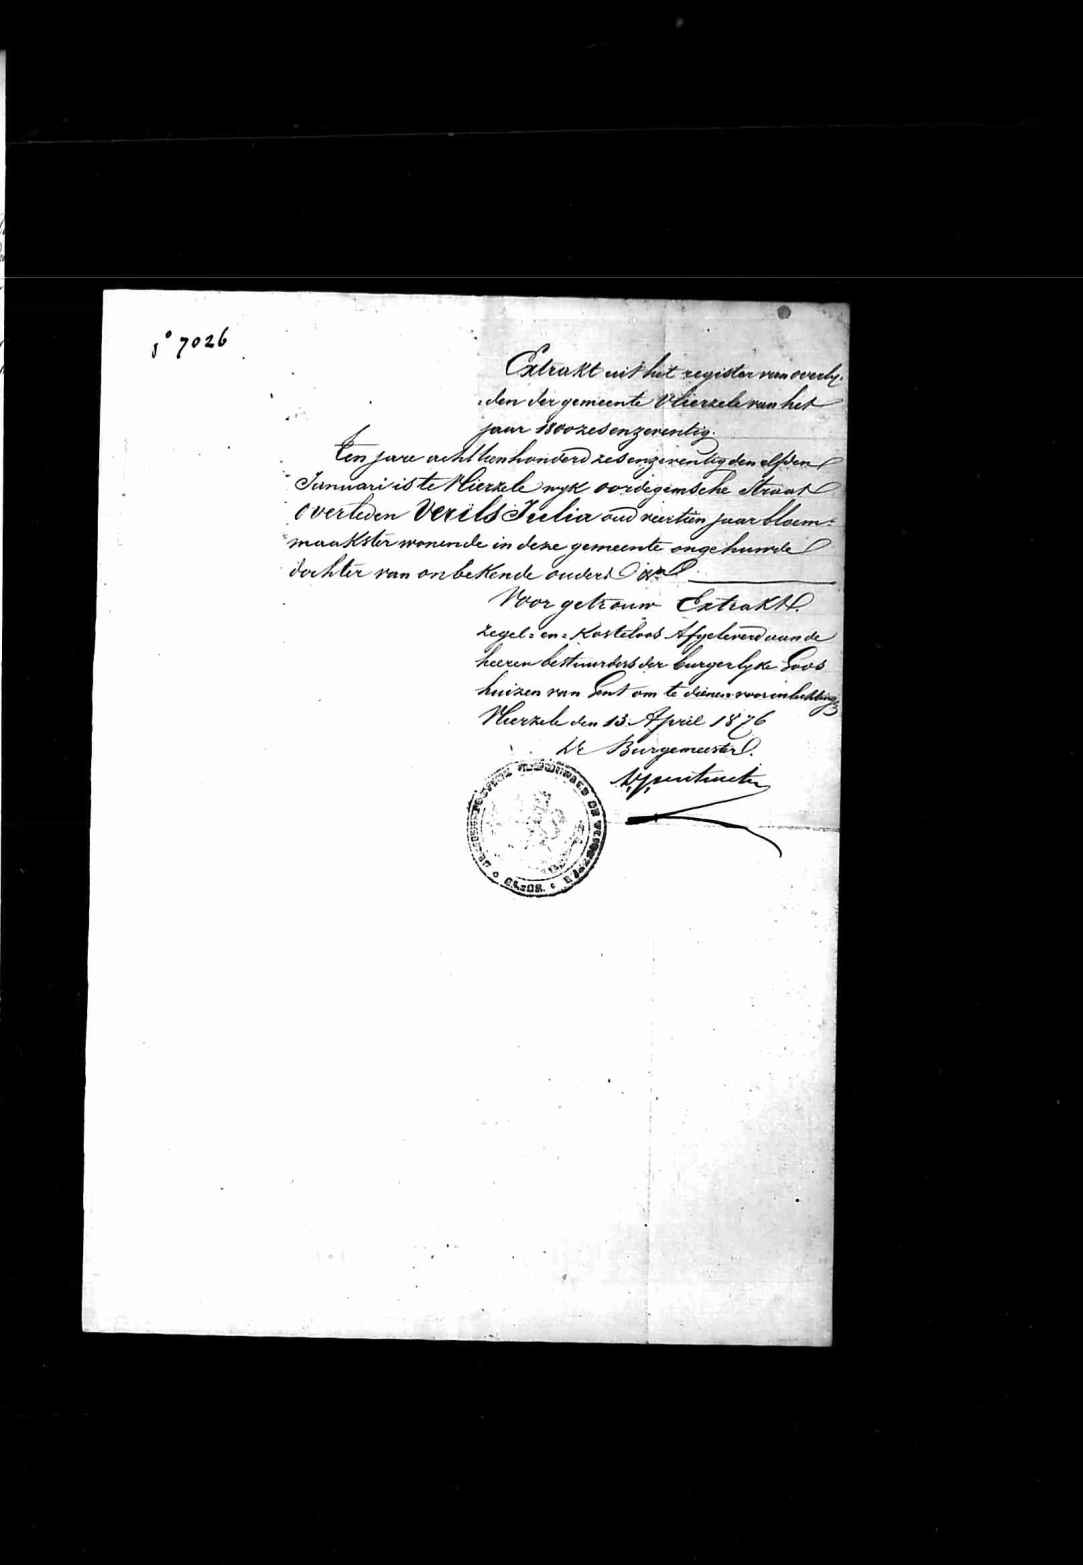 s° 7026
Extrakt uit het register van overly-
den der gemeente Vlierzele van het
jaar 1800zesenzeventig.
Ten jare achttienhonderd zesenzeventig den elfden
Januari is te Vlierzele wyk oordegemsche straat
overleden Verils Julia oud veertien jaar bloem-
maakster wonende in deze gemeente ongehuwde
dochter van onbekende ouders
Voor getrouw Extrakt.
zegel- en - Kosteloos Afgeleverd aan de
heeren bestuurders der burgerlyke Gods
huizen van Gent om te dienen voor inlichting
Vlierzele den 13 April 1876
De Burgemeester.